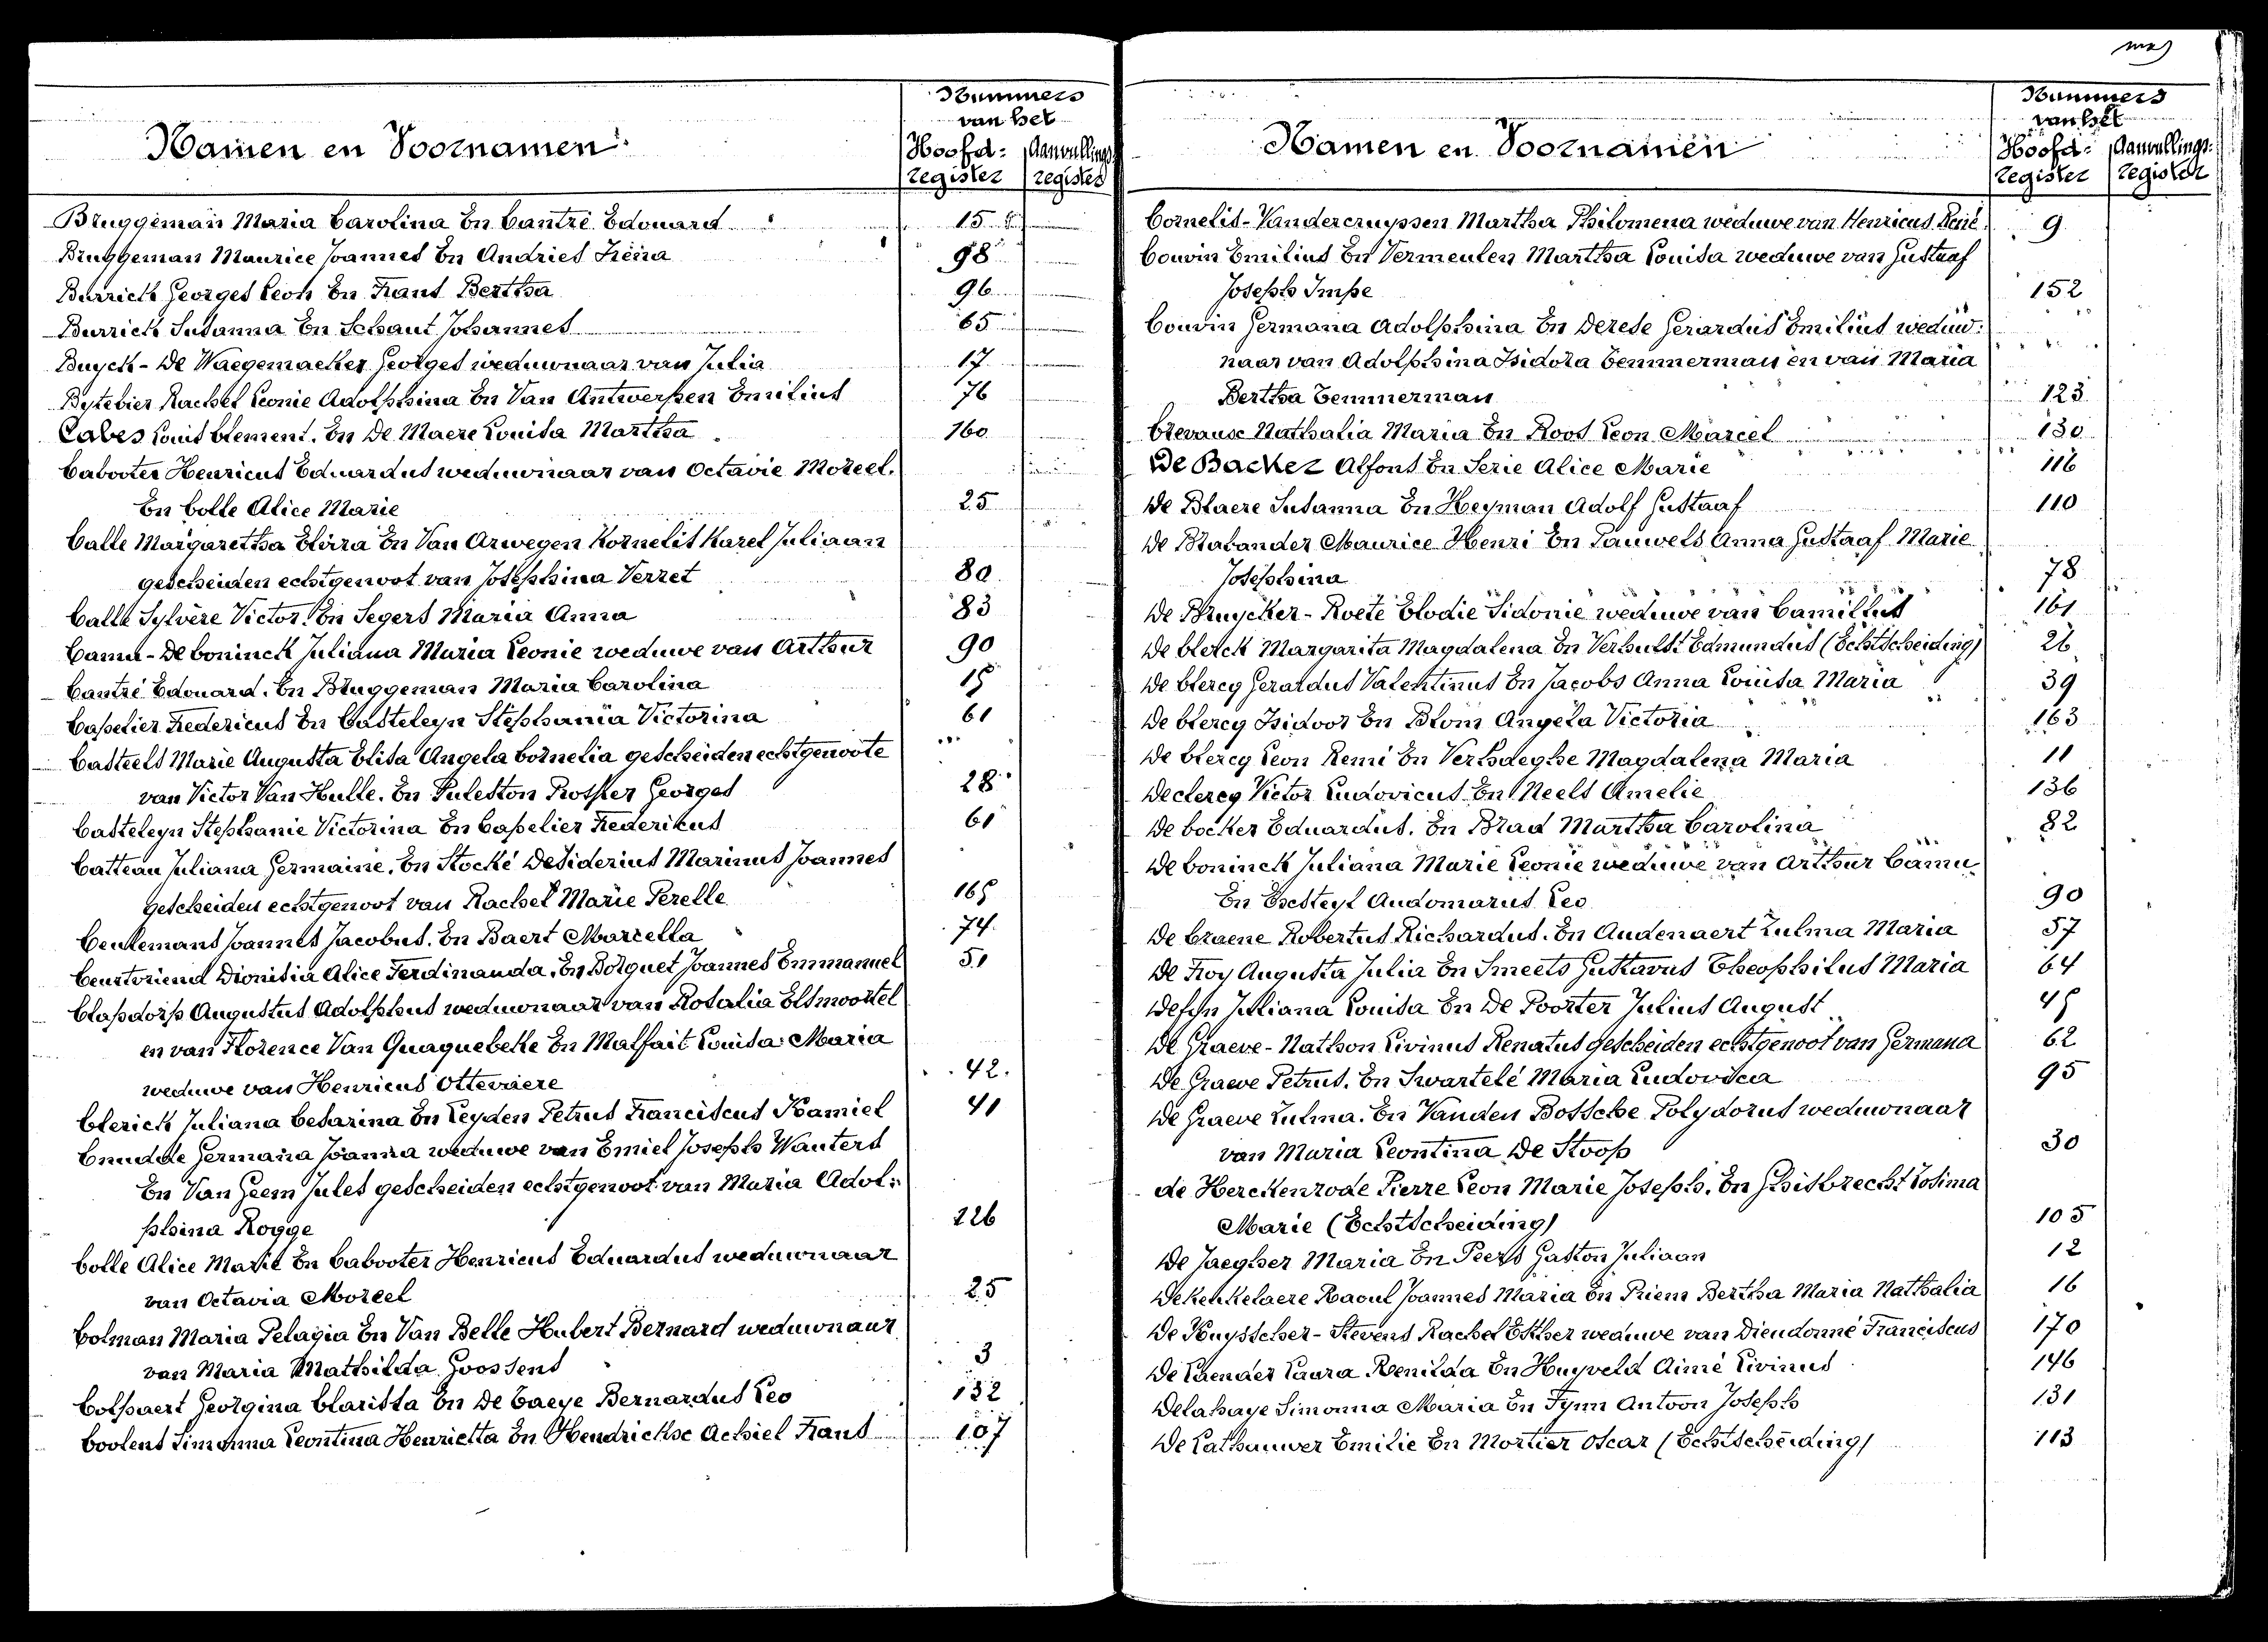 Nummers
van het
Namen en Voornamen
Hoofd- Aanvullings-
register register
Bruggeman Maria Carolina En Cantré Edouard 15
Bruggeman Maurice Joannes En Andries Irèna 98
Burrick Georges Leon En Frans Bertha 96
Burrick Susanna En Schaut Johannes 65
Buyck - De Waegemaeker Georges weduwnaar van Julia 17
Bytebier Rachel Leonie Adolphina En Van Antwerpen Emilius 76
Cabes Louis Clement. En De Maere Louisa Martha 160
Cabooter Henricus Eduardus weduwnaar van Octavie Moreel.
En Colle Alice Marie 25
Calle Margaretha Elvira En Van Arwegen Kornelis Karel Juliaan
gescheiden echtgenoot van Josephina Verret 80
Calle Sylvère Victor. En Segers Maria Anna 83
Camu - De Coninck Juliana Maria Leonie weduwe van Arthur 90
Cantré Edouard. En Bruggeman Maria Carolina 15
Capelier Fredericus En Casteleyn Stephania Victorina 61
Casteels Marie Augusta Elisa Angela Cornelia gescheiden echtgenoote
van Victor Van Hulle. En Puleston Prosper Georges 28
Casteleyn Stephanie Victorina En Capelier Frederikus 61
Catteau Juliana Germaine. En Stocké Desiderius Marinus Joannes
gescheiden echtgenoot van Rachel Marie Perelle 165
Ceulemans Joannes Jacobus. En Baert Marcella 74
Ceustoriend Dionisia Alice Ferdinanda. En Bolquet Joannes Emmanuel 51
Clapdorp Augustus Adolphus weduwnaar van Rosalia Elsmoortel
en van Florence Van Quaquebeke En Malfait Louisa Maria
weduwe van Henricus Ottevaere 42.
Clerick Juliana Cesarina En Leyden Petrus Franciscus Kamiel 41
Cnudde Germana Joanna weduwe van Emiel Joseph Wauters
En Van Geem Jules gescheiden echtgenoot van Maria Adol-
phina Rogge 126
Colle Alice Marie En Cabooter Henricus Eduardus weduwnaar
van Octavia Moreel 25
Colman Maria Pelagia En Van Belle Hubert Bernard weduwnaar
van Maria Mathilda Goossens 3
Colpaert Georgina Clarissa En De Caeye Bernardus Leo 132
Coolens Simonna Leontina Henrietta En Hendrickse Achiel Frans 107
Nummers
van het
Namen en Voornamen
Hoofd- Aanvullings-
register register
Cornelis - Vandercruyssen Martha Philomena weduwe van Henricus René 9
Couvin Emilius En Vermeulen Martha Louisa weduwe van Gustaaf
Joseph Impe 152
Couvin Germana Adolphina En Derese Gerardus Emilius weduw-
naar van Adolphina Isidora Temmerman en van Maria
Bertha Temmerman 123
Crevause Nathalia Maria En Roos Leon Marcel 130
De Backer Alfons En Serie Alice Marie 116
De Blaere Susanna En Heyman Adolf Gustaaf 110
De Brabander Maurice Henri En Pauwels Anna Gustaaf Marie
Josephina 78
De Bruycker - Roete Elodie Sidonie weduwe van Camillus 161
De Clerck Margarita Magdalena En Verhulst Edmundus (Echtscheiding) 26
De Clercq Gerardus Valentinus En Jacobs Anna Louisa Maria 39
De Clercq Isidoor En Blom Angela Victoria 163
De Clercq Leon Remi En Verhaeghe Magdalena Maria 11
Declercq Victor Ludovicus En Neels Amelie 136
De Cocker Eduardus. En Brad Martha Carolina 82
De Coninck Juliana Marie Leonie weduwe van Arthur Camu
En Essteyl Audomarus Leo 90
De Craene Robertus Richardus. En Audenaert Zulma Maria 57
De Froy Augusta Julia En Smeets Gustavus Theophilus Maria 64
Defyn Juliana Louisa En De Poorter Julius August 45
De Graeve - Nathson Livinus Renatus gescheiden echtgenoot van Germana 62
De Graeve Petrus. En Swartelé Maria Ludovica 95
De Graeve Zulma. En Vanden Bossche Polydorus weduwnaar
van Maria Leontina De Stoop 30
de Herckenrode Pierre Leon Marie Joseph. En Ghisbrecht Zosima
Marie (Echtscheiding) 105
De Jaegher Maria En Peers Gaston Juliaan 12
Dekeukelaere Raoul Joannes Maria En Priem Bertha Maria Nathalia 16
De Kuysscher - Stevens Rachel Esther weduwe van Dieudonné Franciscus 170
De Laender Laura Renilda En Huyveld Aimé Livinus 146
Delahaye Simonna Maria En Fynn Antoon Joseph 131
De Lathauwer Emilie En Mortier Oscar (Echtscheiding) 113